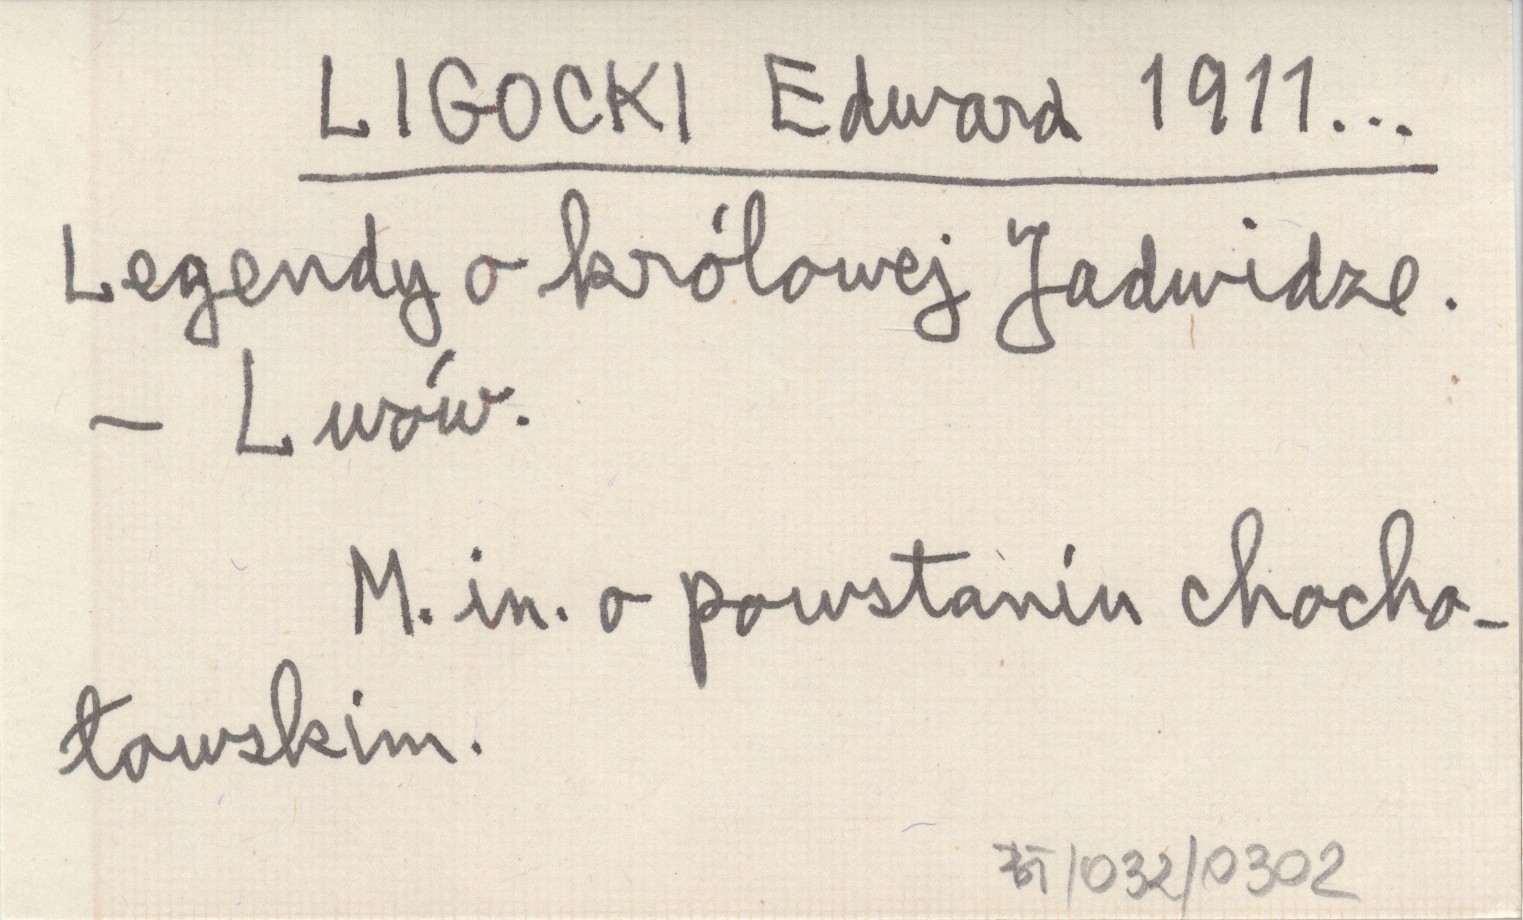 LIGOCKI Edward 1911...
Legendy o królowej Jadwidze.
— Lwów.
M. in. o powstaniu chocho-
łowskim.
/032/0302